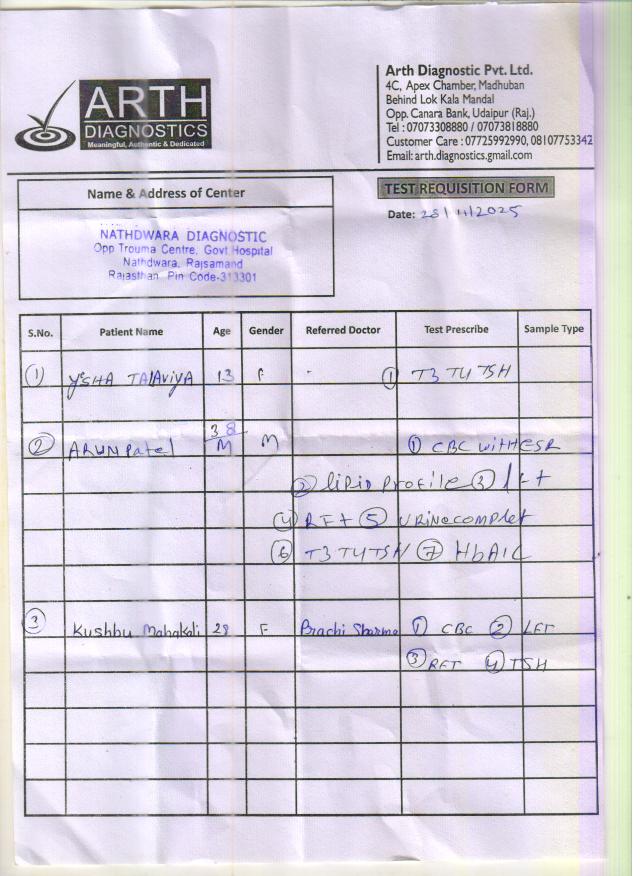 ARTH
DIAGNOSTICS
Meaningful, Authentic & Dedicated
Arth Diagnostic Pvt. Ltd.
4C, Apex Chamber, Madhuban
Behind Lok Kala Mandal
Opp. Canara Bank, Udaipur (Raj.)
Tel : 07073308880 / 07073818880
Customer Care : 07725992990, 08107753342
Email: arth.diagnostics.gmail.com
Name & Address of Center
TEST REQUISITION FORM
Date: 28/11/2025
NATHDWARA DIAGNOSTIC
Opp Trouma Centre, Govt Hospital
Nathdwara, Rajsamand
Rajasthan Pin Code-313301
S.No. Patient Name Age Gender Referred Doctor Test Prescribe Sample Type
① YISHA TALAVIYA 13 F - ① T3 T4 TSH
② ARUN Patel 38/M M ① CBC WITH ESR
② lipid PROFILE ③ lFt
④ RFt ⑤ URINe complet
⑥ T3 T4 TSH ⑦ HbA1C
③ Kushbu Mahakali 28 F Prachi Sharma ① CBC ② LFT
③ RFT ④ TSH